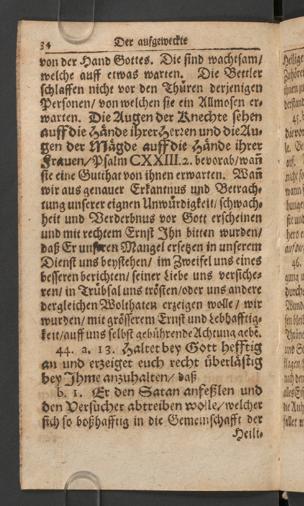 34 Der aufgeweckte
von der Hand Gottes. Die sind wachtsam/
welche auff etwas warten. Die Bettler
schlaffen nicht vor den Thüren derjenigen
Personen/ von welchen sie ein Allmosen er-
warten. Die Augen der Knechte sehen
auff die Hände ihrer Herren und die Au-
gen der Mägde auff die Hände ihrer
Frauen/ Psalm CXXIII. 2. bevorab/ wañ
sie eine Gutthat von ihnen erwarten. Wañ
wir aus genauer Erkantnus und Betrach-
tung unserer eignen Unwürdigkeit/ schwach-
heit und Verderbnus vor Gott erscheinen
und mit rechtem Ernst Ihn bitten wurden/
daß Er unseren Mangel ersetzen in unserem
Dienst uns beystehen/ im Zweifel uns eines
besseren berichten/ seiner Liebe uns versiche-
ren/ in Trübsal uns trösten/ oder uns andere
dergleichen Wolthaten erzeigen wolle/ wir
wurden/ mit grösserem Ernst und Lebhafftig-
keit/ auff uns selbst gebührende Achtung gebē.
44. a. 13. Haltet bey Gott hefftig
an und erzeiget euch recht überlästig
bey Ihme anzuhalten/ daß
b. 1. Er den Satan anfeßlen und
den Versucher abtreiben wolle/ welcher
sich so boßhafftig in die Gemeinschafft der
Heili-